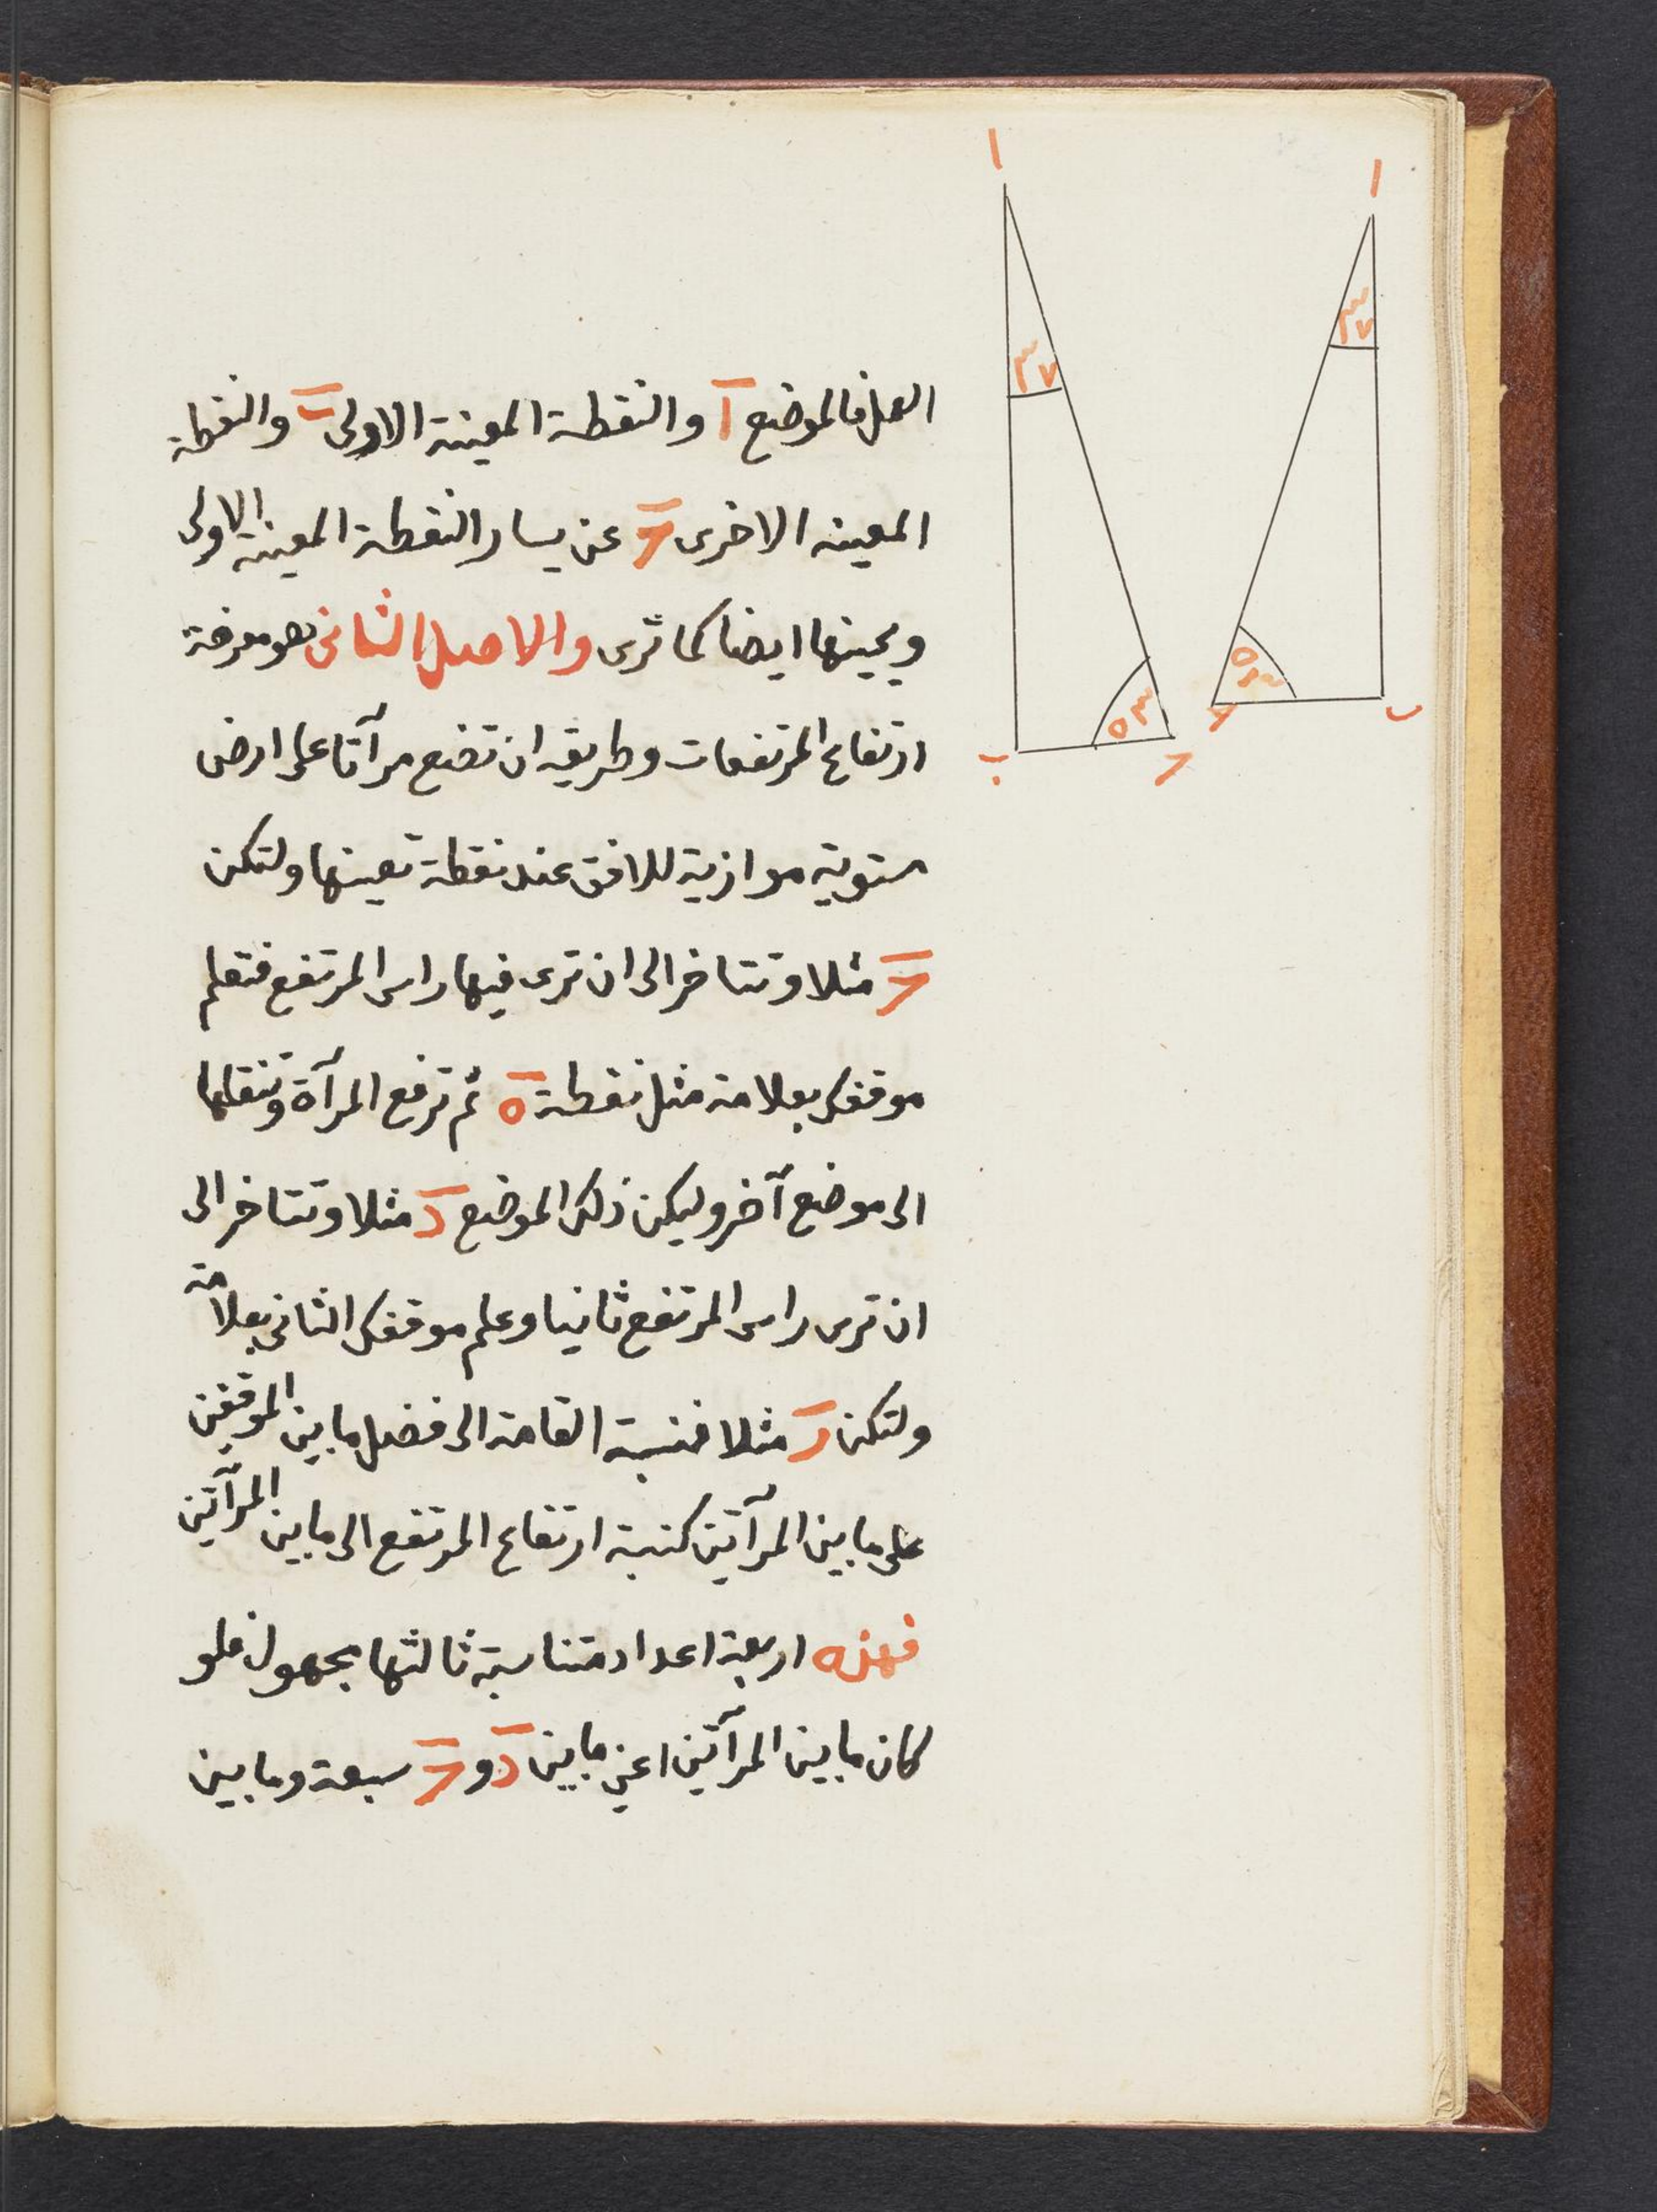 العمل فالموضع ا والنقطة المعينة الاولى ب والنقطة
المعينه الاخرى ح عن يسار النقطة المعينة الاولى
ويمينها ايضا كما ترى والاصل الثانى هو معرفة
ارتفاع المرتفعات وطريقه ان تضع مرآتا على ارض
مستوية موازية للافق عند نقطة تعينها ولتكن
ح مثلا وتتاخر الى ان ترى فيها راس المرتفع فتعلم
موقفك بعلامة مثل نقطة ه ثم ترفع المرآة وتنقلها
الى موضع آخر وليكن ذلك الموضع د مثلا وتتاخر الى
ان ترى راس المرتفع ثانيا وعلم موقفك الثانى بعلامة
ولتكن ر مثلا فنسبة القامة الى فضل ما بين الموقفين
على ما بين المرآتين كنسبة ارتفاع المرتفع الى ما بين المرآتين
فهذه اربعة اعداد متناسبة ثالثها مجهول فلو
كان ما بين المرآتين اعنى ما بين د و ح سبعة وما بين
ا
٣٧
٥٣
ب
ح
ا
٣٧
٥٣
ب
ح